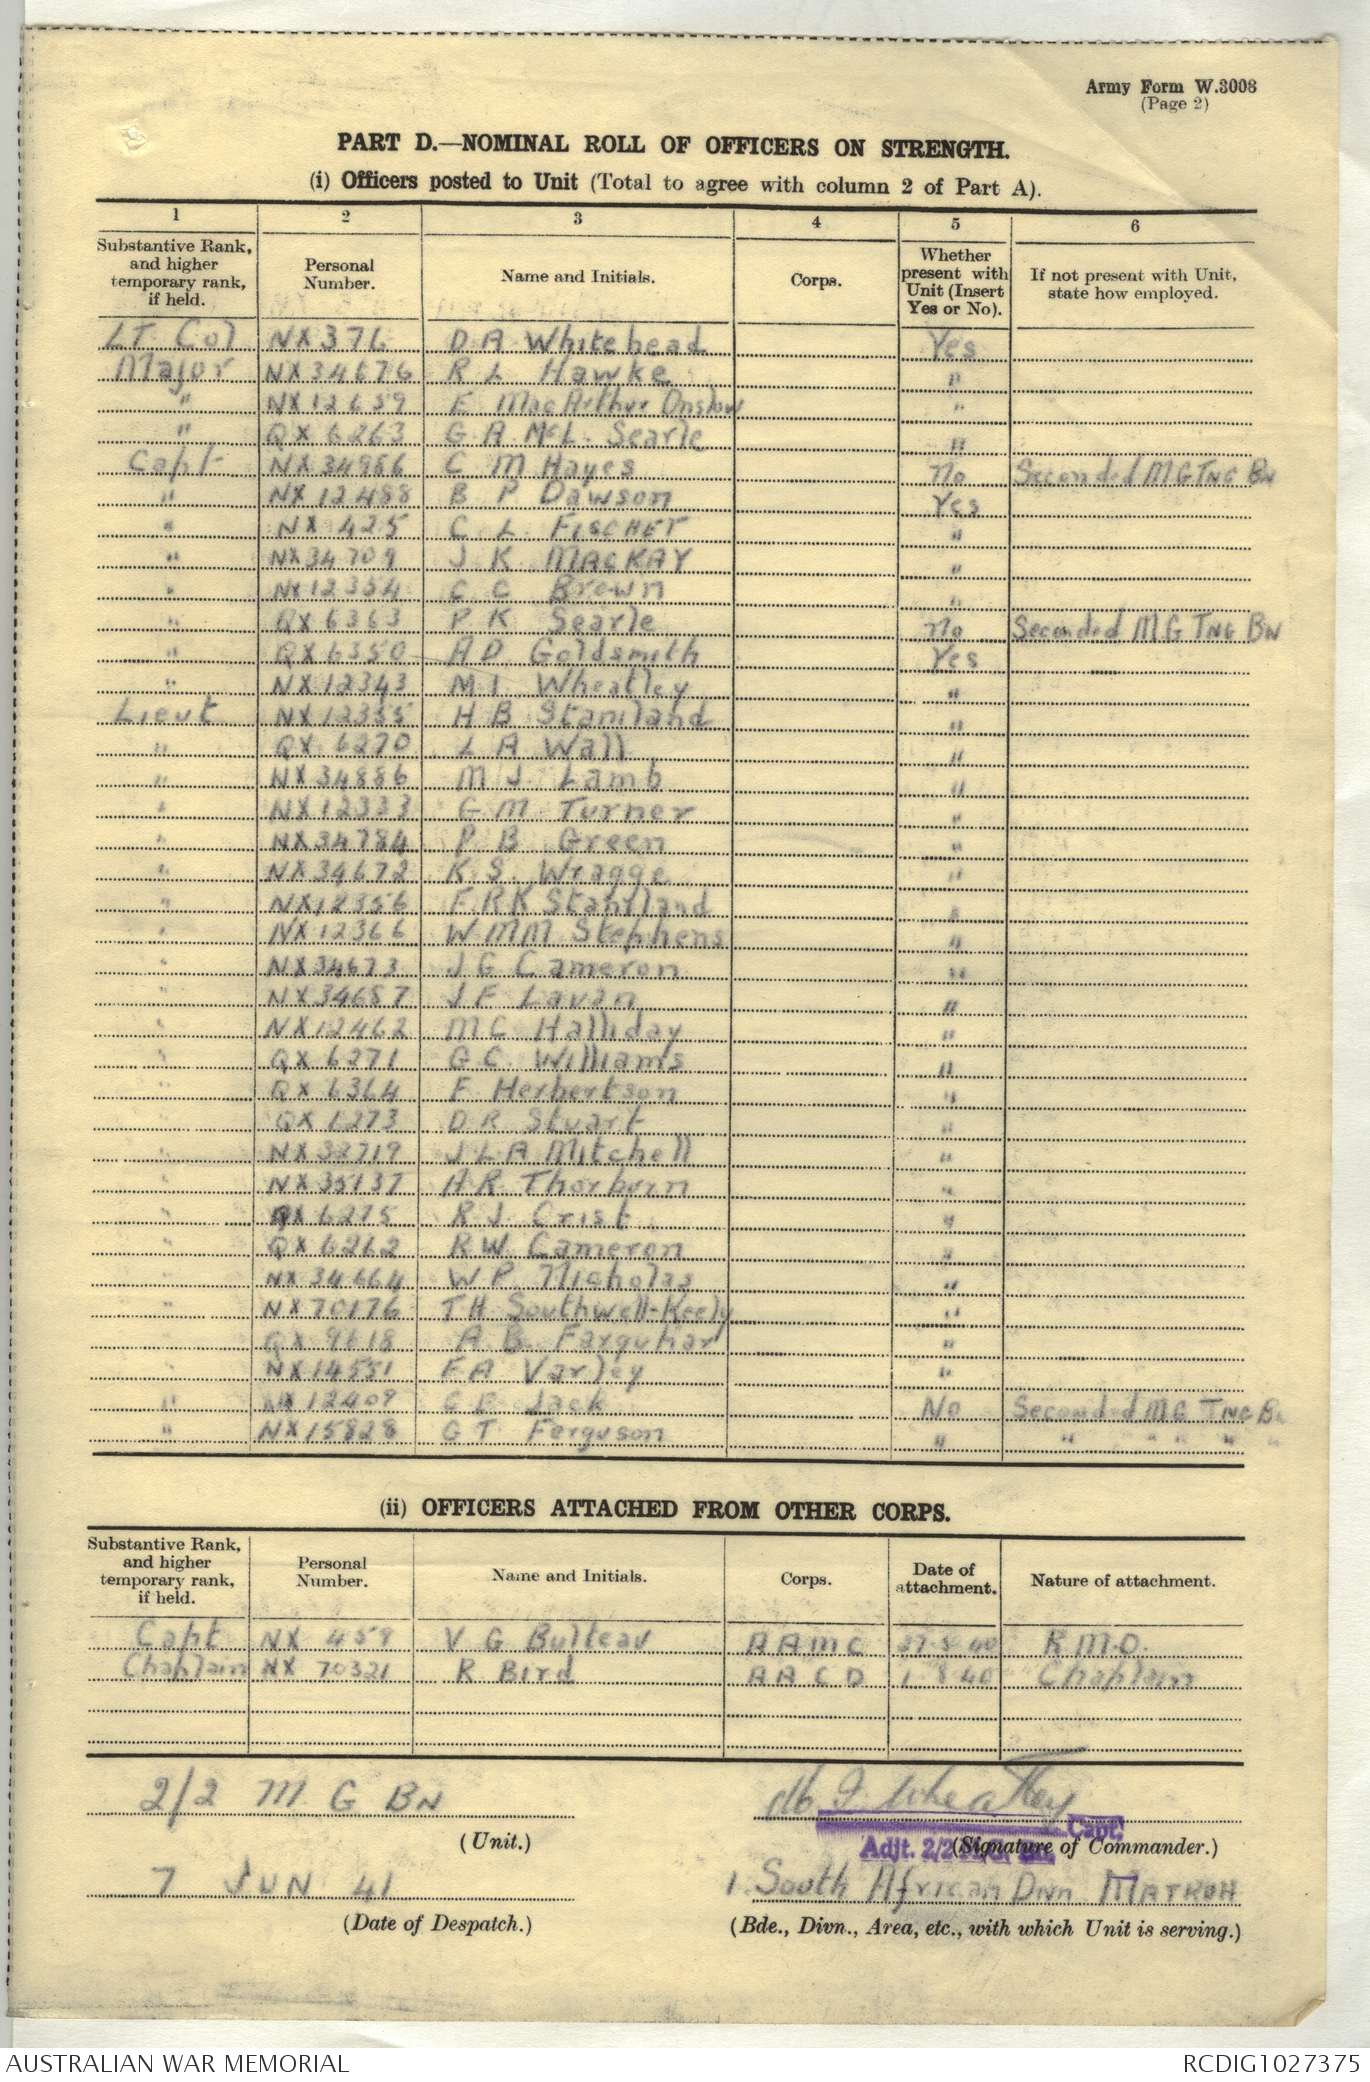 Army Form W.3008
(Page 2)
PART D.—NOMINAL ROLL OF OFFICERS ON STRENGTH.
(i) Officers posted to Unit (Total to agree with column 2 of Part A).
1 2 3 4 5 6
Substantive Rank, and higher temporary rank, if held. Personal Number. Name and Initials. Corps. Whether present with Unit (Insert Yes or No). If not present with Unit, state how employed.
LT Col NX376 D A Whitehead Yes
Major NX34676 R L Hawke "
" NX12659 E MacArthur Onslow "
" QX6263 G A McL. Searle "
Capt NX34986 C M Hayes No Seconded M G Tng Bn
" NX12488 B P Dawson Yes
" NX 425 C L FISCHER "
" NX34709 J K MACKAY "
" NX12354 C C Brown "
" QX6363 P K Searle No Seconded M G Tng Bn
" QX6350 A D Goldsmith Yes
" NX12343 M I Wheatley "
Lieut NX12355 H B Staniland "
" QX 6270 L A Wall "
" NX34886 M J Lamb "
" NX12333 G M Turner "
" NX34784 P B Green "
" NX34672 K S Wragge "
" NX12356 F R K Staniland "
" NX12366 W M M Stephens "
" NX34673 J G Cameron "
" NX34687 J F Lavan "
" NX12462 M C Halliday "
" QX 6271 G C Williams "
" QX 6364 F Herbertson "
" QX 6273 D R Stuart "
" NX32719 J L A Mitchell "
" NX35137 H R Thorburn "
" QX6275 R J Crist "
" QX6262 R W Cameron "
" NX34664 W P Nicholas "
" NX70176 T H Southwell-Keely "
" QX 9618 A B Farquhar "
" NX14551 F A Varley "
" NX12409 C E Jack No Seconded M G Tng Bn
" NX15828 G T Ferguson " " " " " "
(ii) OFFICERS ATTACHED FROM OTHER CORPS.
Substantive Rank, and higher temporary rank, if held. Personal Number. Name and Initials. Corps. Date of attachment. Nature of attachment.
Capt NX 459 V G Bulteau A A M C 27 5 40 R.M.O.
Chaplain NX 70321 R Bird A A C D 1 8 40 Chaplain
2/2 M G BN M I Wheatley Capt.
(Unit.) Adjt. 2/2 (Signature of Commander.)
7 JUN 41 1 South African Divn MATRUH
(Date of Despatch.) (Bde., Divn., Area, etc., with which Unit is serving.)
AUSTRALIAN WAR MEMORIAL RCDIG1027375